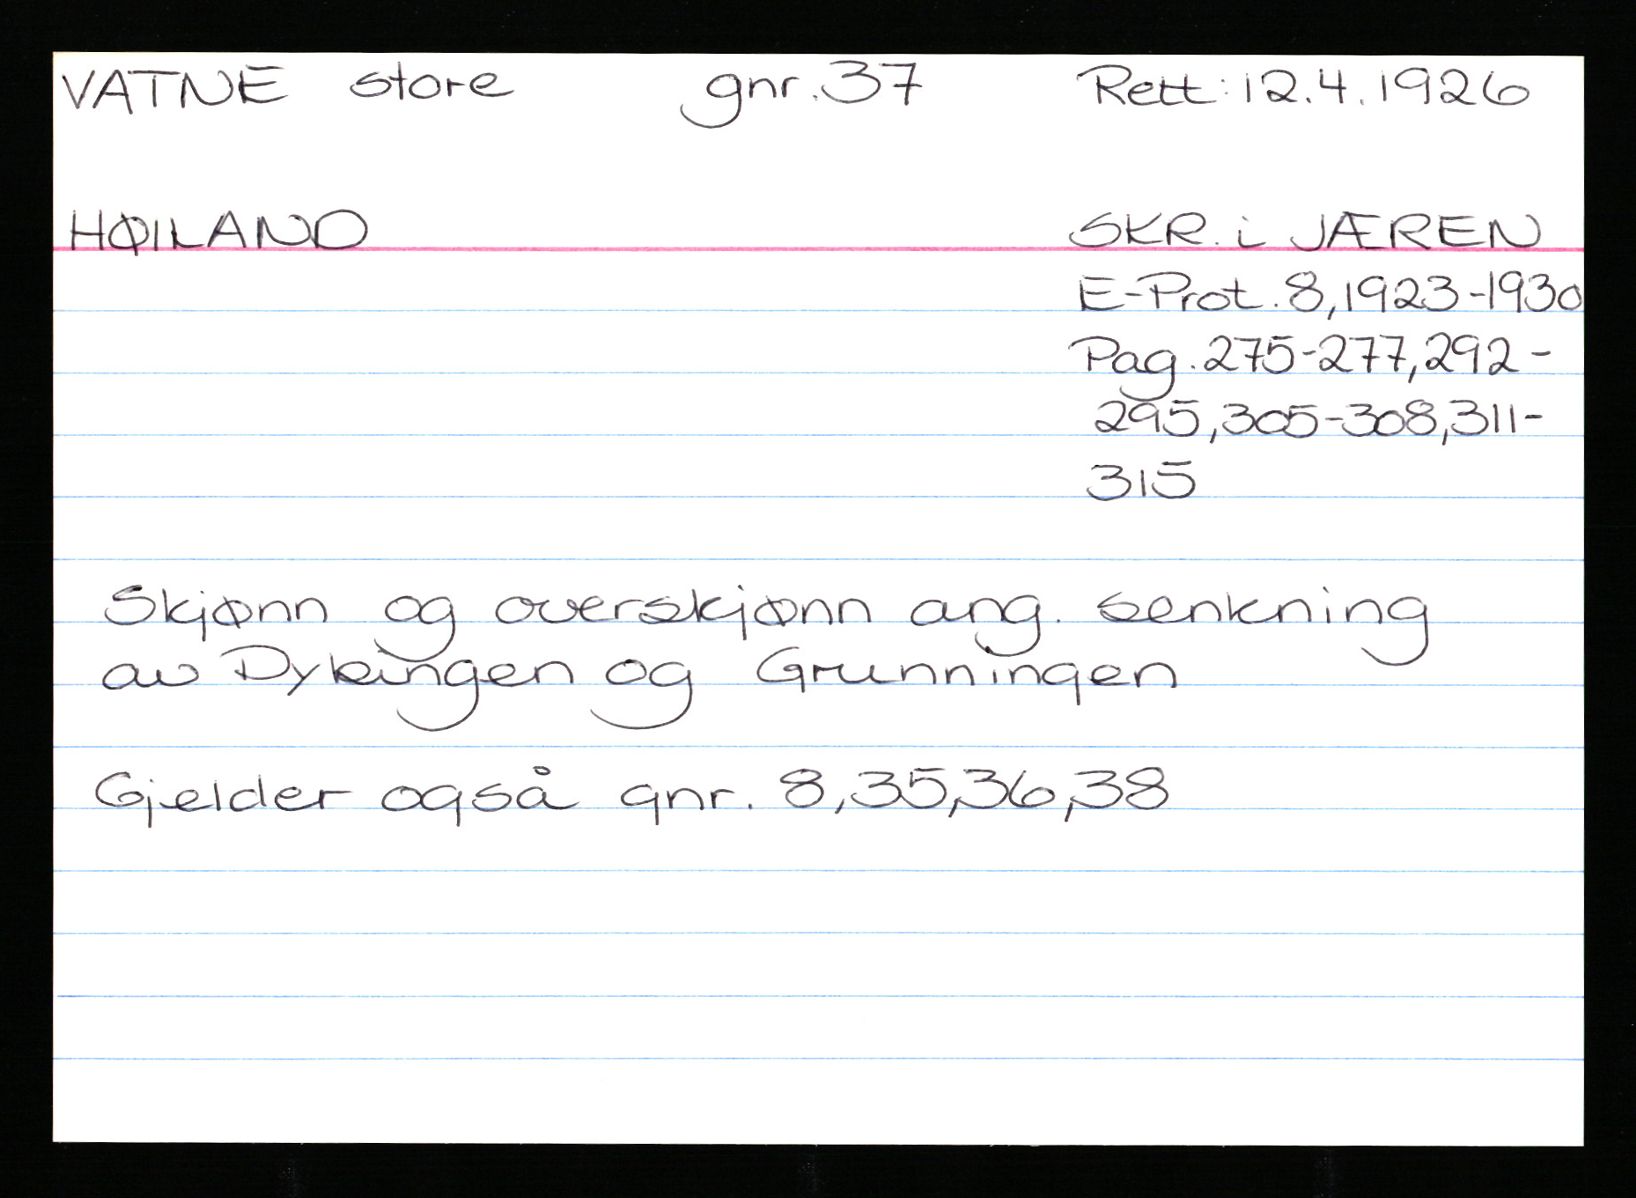 VATNE store gnr. 37 Rett: 12.4.1926
HØILAND SKR. i JÆREN
E-Prot. 8, 1923-1930
Pag. 275-277, 292-
295, 305-308, 311-
315
Skjønn og overskjønn ang. senkning
av Dybingen og Grunningen
Gjelder også gnr. 8, 35, 36, 38